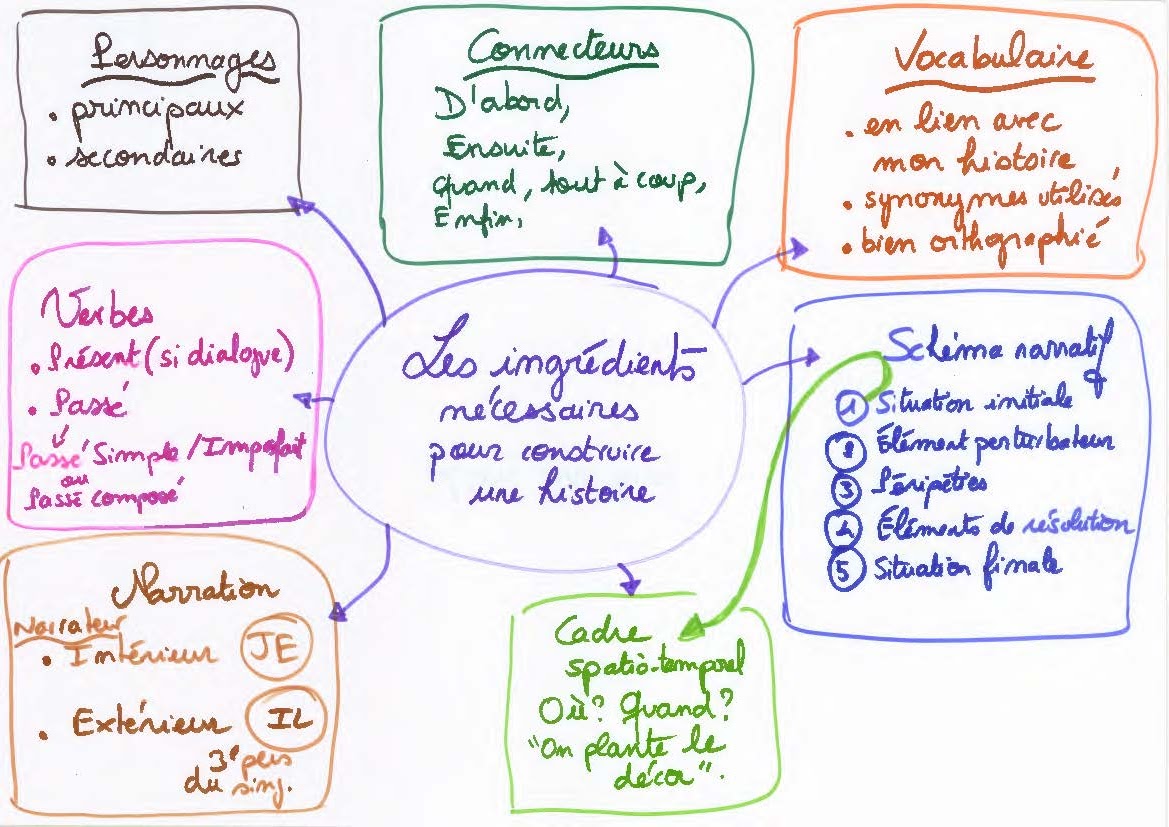 Personnages
• principaux
• secondaires
Connecteurs
D'abord,
Ensuite,
Quand, tout à coup,
Enfin,
Vocabulaire
• en lien avec
mon histoire
• synonymes utilisés
• bien orthographié
Verbes
• Présent (si dialogue)
• Passé
Passé Simple / Imparfait
ou
Passé composé
Les ingrédients
nécessaires
pour construire
une histoire
Schéma narratif
1 Situation initiale
2 Élément perturbateur
3 Péripéties
4 Éléments de résolution
5 Situation finale
Narration
Narrateur
• Intérieur JE
• Extérieur IL
3e pers
du sing.
Cadre
spatio-temporel
Où? Quand?
"On plante le
décor".